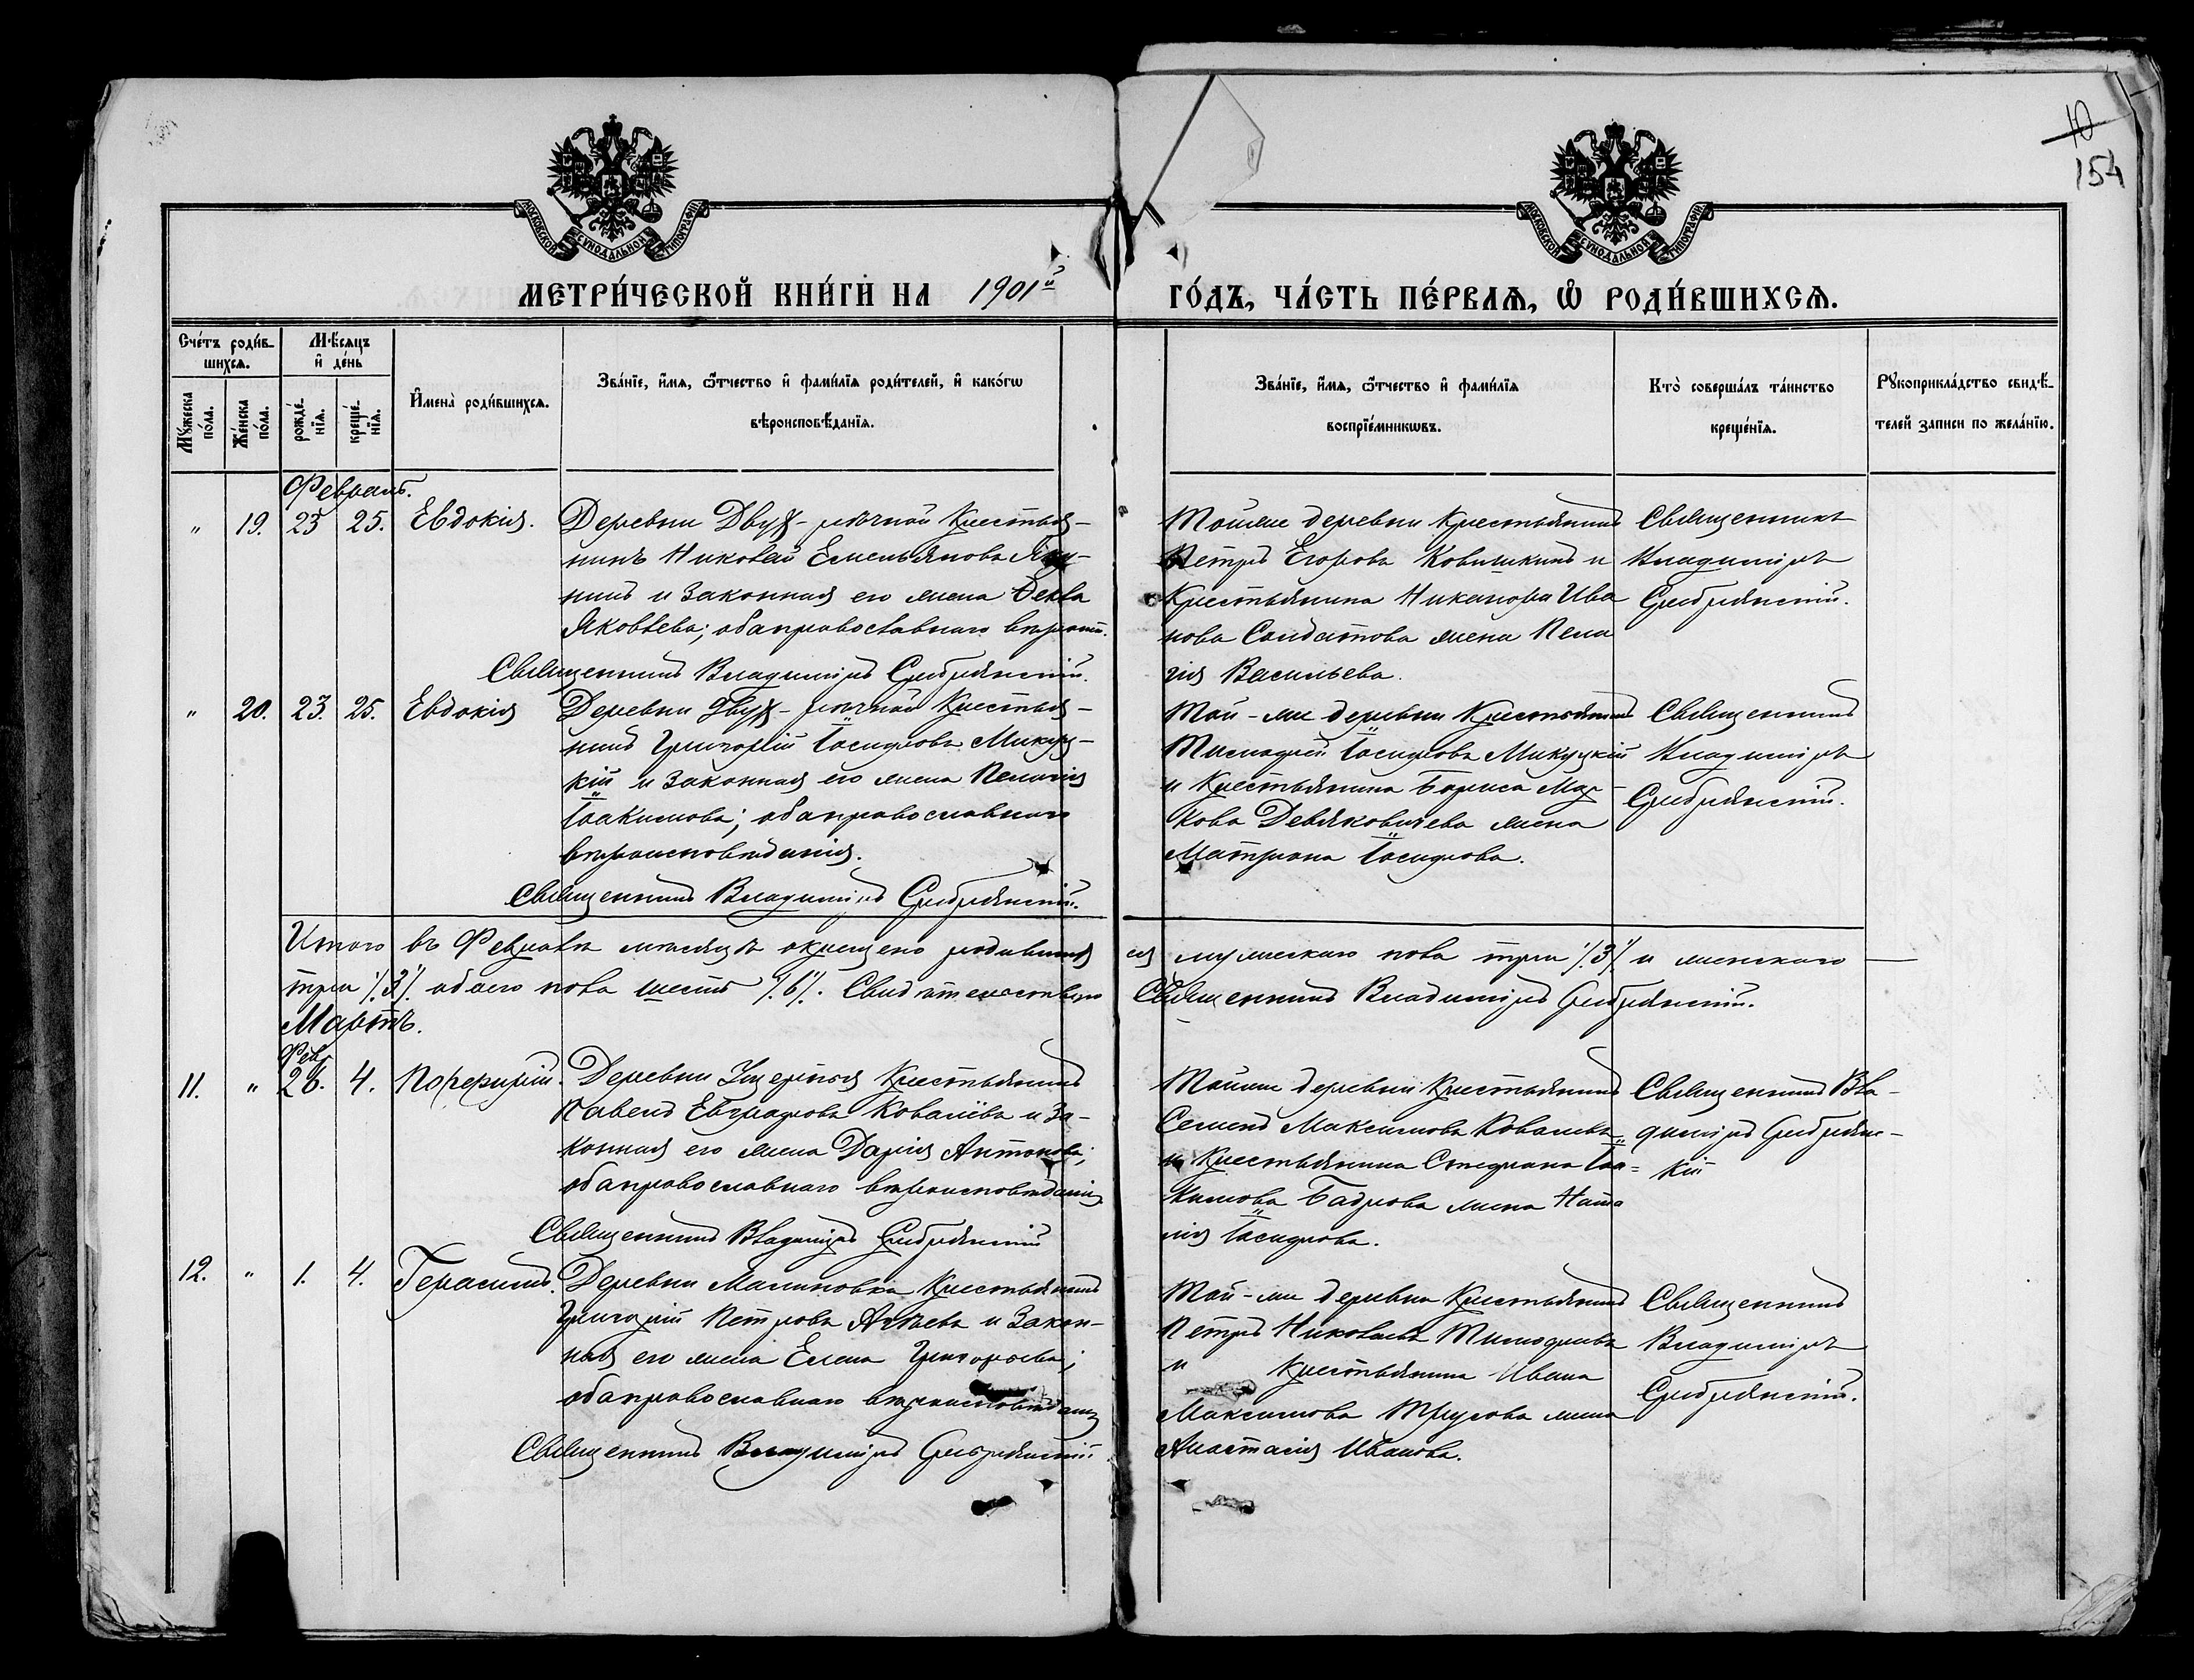 10
154
МОСКОВСКОЙ СѴНОДАЛЬНОЙ ТИПОГРАФІИ
МОСКОВСКОЙ СѴНОДАЛЬНОЙ ТИПОГРАФІИ
МЕТРИ́ЧЕСКОЙ КНИ́ГИ НА 1901й ГО́ДЪ, ЧА́СТЬ ПЕ́РВАѦ, Ѡ҆ РОДИ́ВШИХСѦ.
Сче́тъ роди́в-
шихсѧ.
Мꙋжеска по́ла.
Же́нска по́ла.
Мѣ́сѧцъ
и҆ де́нь
рожде́-
нїѧ.
креще́-
нїѧ.
И҆мена̀ роди́вшихсѧ.
Зва́нїе, и҆́мѧ, ѻ҆́тчество и҆ фами́лїѧ роди́телей, и҆ како́гѡ
вѣроисповѣ́данїѧ.
Зва́нїе, и҆́мѧ, ѻ҆́тчество и҆ фами́лїѧ
воспрїе́мникѡвъ.
Кто̀ соверша́лъ та́инство
креще́нїѧ.
Рꙋкоприкла́дство свидѣ́-
телей записи по жела́нїю.
Февраль.
" 19. 23 25. Евдокія.
Деревни Двух-рѣчной Крестья-
нинъ Николай Емельяновъ Яку-
нинъ и законная его жена Фекла
Яковлева; оба православнаго вѣроисп.
Священникъ Владиміръ Сребрянскій.
Тойже деревни Крестьянинъ
Петръ Егоровъ Ковшикинъ и
Крестьянина Никанора Ива
нова Солдатова жена Пела
гія Васильева.
Священникъ
Владиміръ
Сребрянскій.
" 20. 23. 25. Евдокія
Деревни Двух-рѣчной Крестья-
нинъ Григорій Іосифовъ Микуц-
кій и законная его жена Пелагія
Іоакимова; оба православнаго
вѣроисповѣданія.
Священникъ Владиміръ Сребрянскій.
Той-же деревни Крестьянинъ
Тимофей Іосифовъ Микуцкій
и Крестьянина Бориса Мар-
кова Девяковичева жена
Матрона Іосифова.
Священникъ
Владиміръ
Сребрянскій.
Итого въ Февралѣ мѣсяцѣ окрещено родивших ся мужескаго пола три ٪3٪ и женскаго
три ٪3٪ обоего пола шесть ٪6٪. Свидѣтельствую Священникъ Владиміръ Сребрянскій.
Мартъ.
Фев.
11. " 26. 4. Порфирій.
Деревни Крестьянинъ
Павелъ Евграфовъ Ковалёвъ и за-
конная его жена Дарія Антонова;
оба православнаго вѣроисповѣданія
Священникъ Владиміръ Сребрянскій
Тойже деревни Крестьянинъ
Семенъ Максимовъ Ковалевъ
и Крестьянина Стефана Іоа-
кимова жена Ната
лія Іосифова.
Священникъ Вла-
диміръ Сребрянс-
кій
12. " 1. 4. Герасимъ.
Деревни Малиновка Крестьянинъ
Григорій Петровъ и закон-
ная его жена Елена Григорьева;
оба православнаго вѣроисповѣданія
Священникъ Владиміръ Сребрянскій
Той-же деревни Крестьянинъ
Петръ Николаевъ Тимофеевъ
и Крестьянина Ивана
Максимова Трусова жена
Анастасія Иванова.
Священникъ
Владиміръ
Сребрянскій.